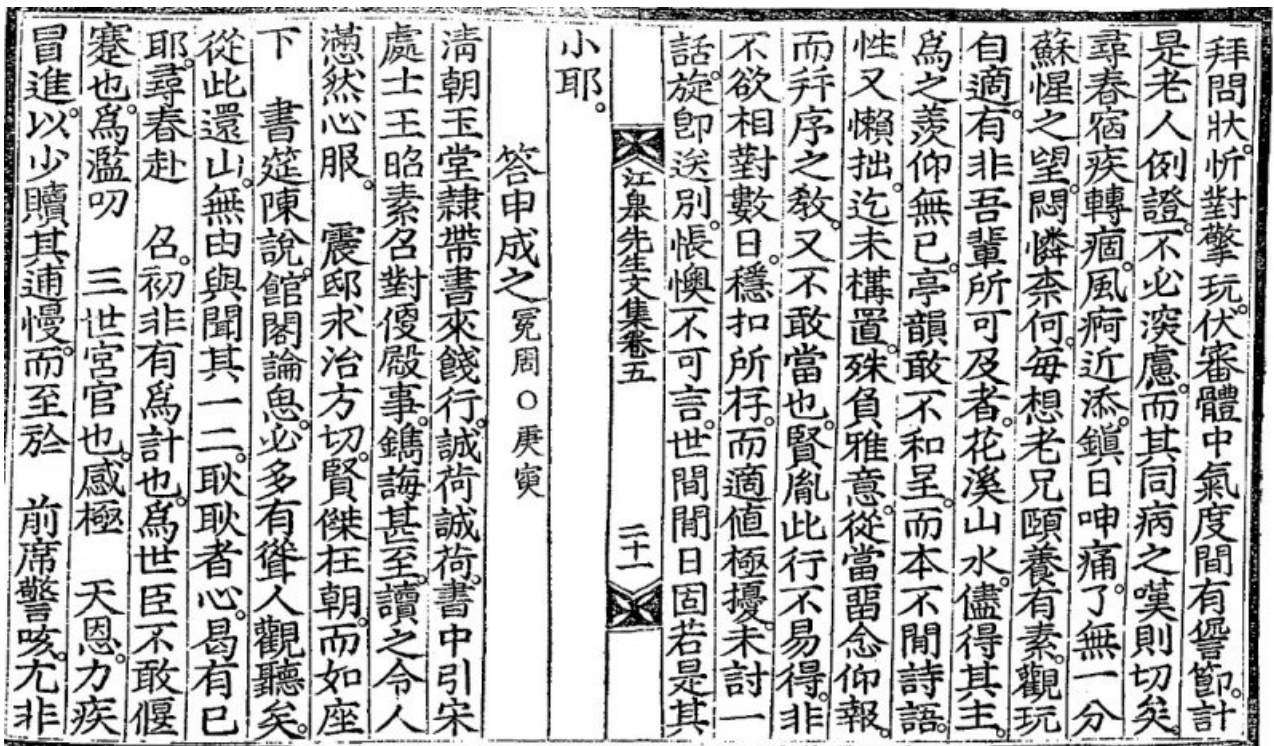 拜問狀。忻對擎玩。伏審體中氣度間有諐節。計
是老人例證。不必深慮。而其同病之嘆則切矣。
尋春宿疾轉痼。風痾近添。鎭日呻痛。了無一分
蘇惺之望。悶憐柰何。每想老兄頤養有素。觀玩
自適。有非吾輩所可及者。花溪山水。儘得其主。
爲之羨仰無已。亭韻敢不和呈。而本不閒詩語。
性又懶拙。迄未構置。殊負雅意。從當留念仰報。
而幷序之敎。又不敢當也。賢胤此行。不易得。非
不欲相對數日。穩扣所存。而適値極擾。未討一
話。旋卽送別。悵懊不可言。世間閒日固若是其
江皐先生文集卷五
二十一
小耶。
答申成之 冕周○庚寅
淸朝玉堂隷帶書來餞行。誠荷誠荷。書中引宋
處士王昭素召對便殿事。鐫誨甚至。讀之令人
懣然心服。 震邸求治方切。賢傑在朝。而如座
下 書筵陳說。館閣論思。必多有聳人觀聽矣。
從此還山。無由與聞其一二。耿耿者心。曷有已
耶。尋春赴 召。初非有爲計也。爲世臣不敢偃
蹇也。爲濫叨 三世宮官也。感極 天恩。力疾
冒進。以少贖其逋慢。而至於 前席警咳。尤非